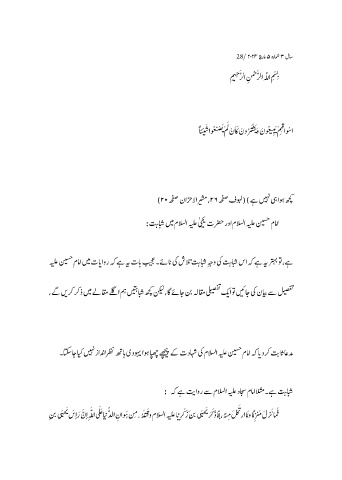 سال ۳ شمارہ ۵ مارچ ۲۰۲۴ /28
بِسْمِ اللہِ الرَّحْمٰنِ الرَّحِیْمِ
کچھ ہوا ہی نہیں ہے ) ( لہوف صفحہ ۲۹، مثیر الاحزان صفحہ ۲۰)
امام حسین علیہ السلام اور حضرت یحییٰ علیہ السلام میں شباہت:
ہے، تو بہتر یہ ہے کہ اس شباہت کی وجہِ شباہت تلاش کی جائے۔ عجیب بات یہ ہے کہ روایات میں امام حسین علیہ
تفصیل سے بیان کی جائیں تو ایک تفصیلی مقالہ بن جائے گا، لیکن کچھ شباہتیں ہم اگلے مقالے میں ذکر کریں گے،
مدعا ثابت کر دیا کہ امام حسین علیہ السلام کی شہادت کے پیچھے چھپا ہوا یہودی ہاتھ نظر انداز نہیں کیا جا سکتا۔
شباہت ہے۔ مثلا امام سجاد علیہ السلام سے روایت ہے کہ :
فَمَا نَزَلَ مَنْزِلًا وَلَا ارْتَحَلَ مِنْهُ اِلَّا ذَکَرَ یَحْیَی بْنَ زَکَرِیَّا علیہ السلام وَقَتْلَهُ . مِن هَوانِ الدُّنْیَا عَلَی اللهِ اِنَّ رَاْسَ یَحْیَی بْنِ